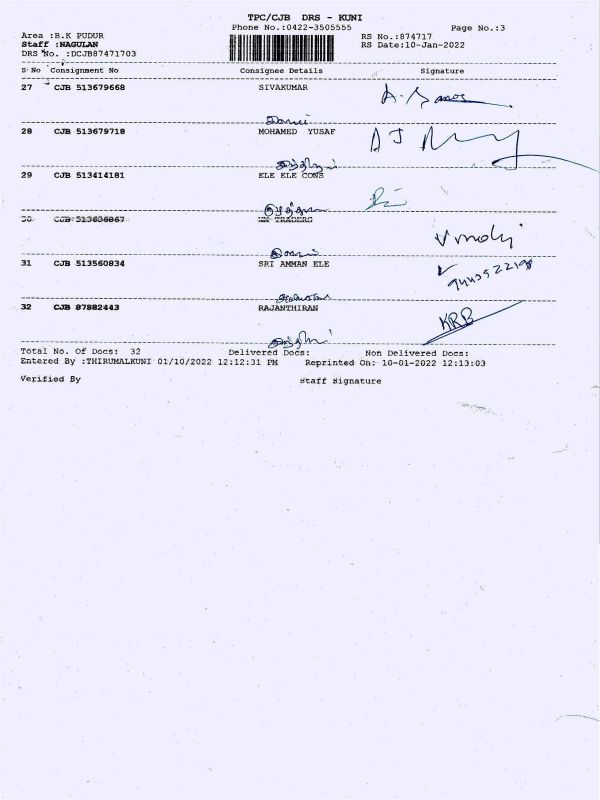 TPC/CJB DRS - KUNI
Phone No.:0422-3505555 Page No.:3
Area :B.K PUDUR RS No.:874717
Staff :NAGULAN RS Date:10-Jan-2022
DRS No. :DCJB87471703
S No Consignment No Consignee Details Signature
27 CJB 513679668 SIVAKUMAR
28 CJB 513679718 MOHAMED YUSAF
29 CJB 513414181 ELE ELE CONS
30 CJB 513636867 MM TRADERS
31 CJB 513560834 SRI AMMAN ELE
32 CJB 87882443 RAJANTHIRAN
KRB
Total No. Of Docs: 32 Delivered Docs: Non Delivered Docs:
Entered By :THIRUMALKUNI 01/10/2022 12:12:31 PM Reprinted On: 10-01-2022 12:13:03
Verified By Staff Signature